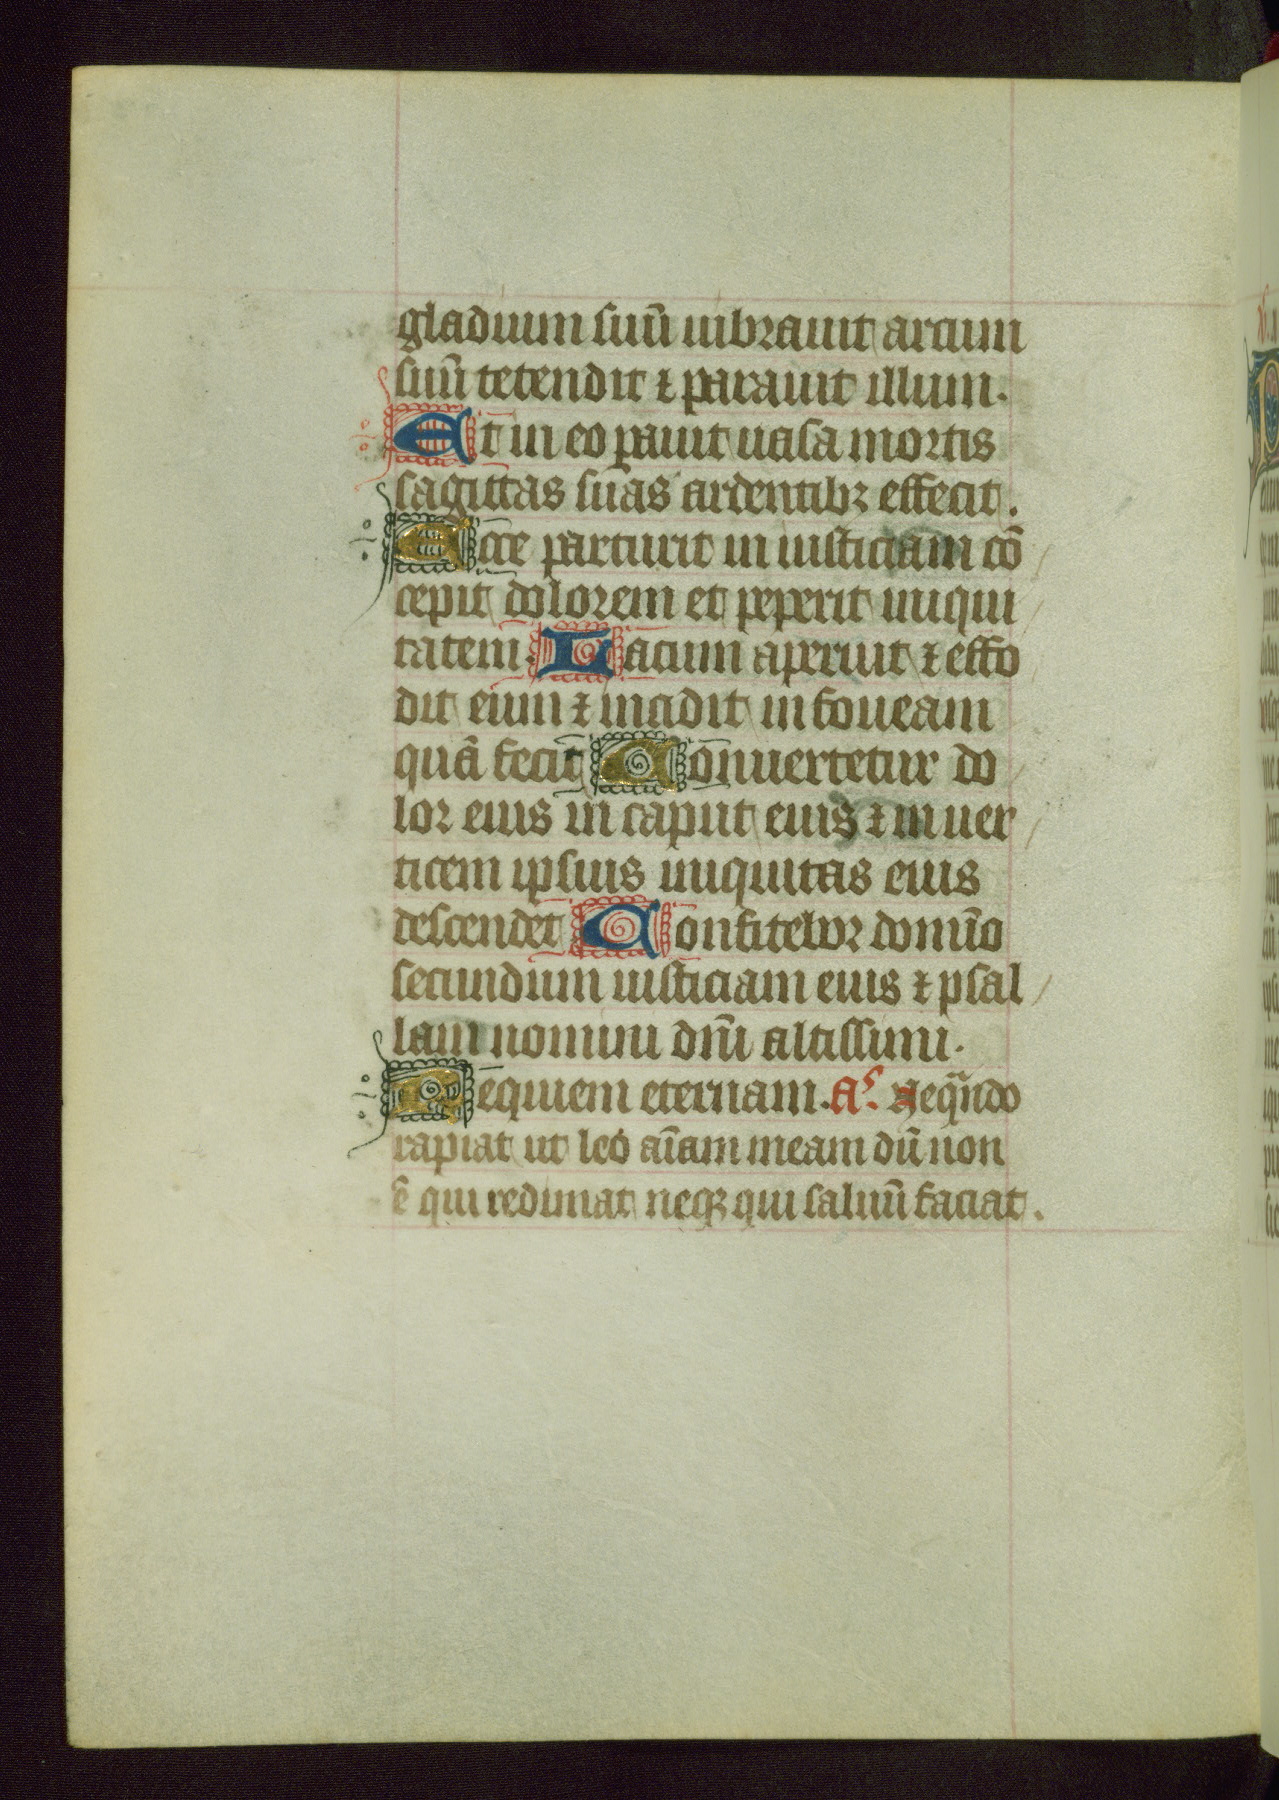 gladium suū uibrauit arcum
suū tetendit ⁊ parauit illum.
Et in eo pauit uasa mortis
sagittas suas ardentibꝫ effecit.
Ecce parturit in iusticiam cō
cepit dolorem et peperit iniqui
tatem. Lacum aperuit ⁊ effo
dit eium ⁊ incidit in foueam
quā fecit Conuertetur do
lor eius in caput eius ⁊ in uer
ticem ipsius iniquitas eius
descendet Confitebor domīo
secundum iusticiam eius ⁊ psal
lam nomini dnī altissimi.
Requiem eternam. Aˢ. Nequādo
rapiat ut leo aīam meam dū non
ē qui redimat neqꝫ qui saluū faciat.